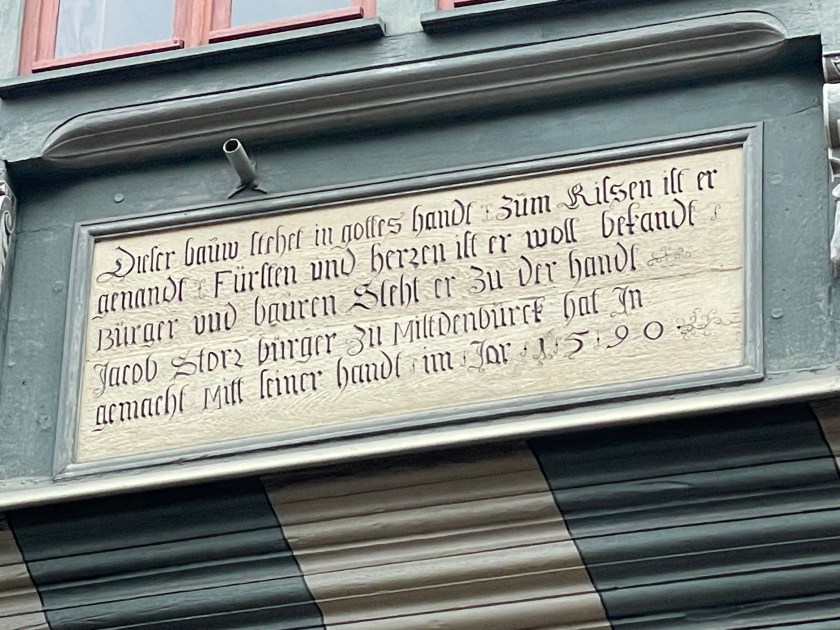 Dieser baüw stehet in gottes handt : Züm Rissen ist er
genandt : Fürsten und herzen ist er woll bekandt :
Bürger vnd bauren Steht er Zu der handt
Jacob Storz bürger Zu Miltdenbürck hat In
gemacht Mitt seiner handt : im : Jar : 1 : 5 : 9 0